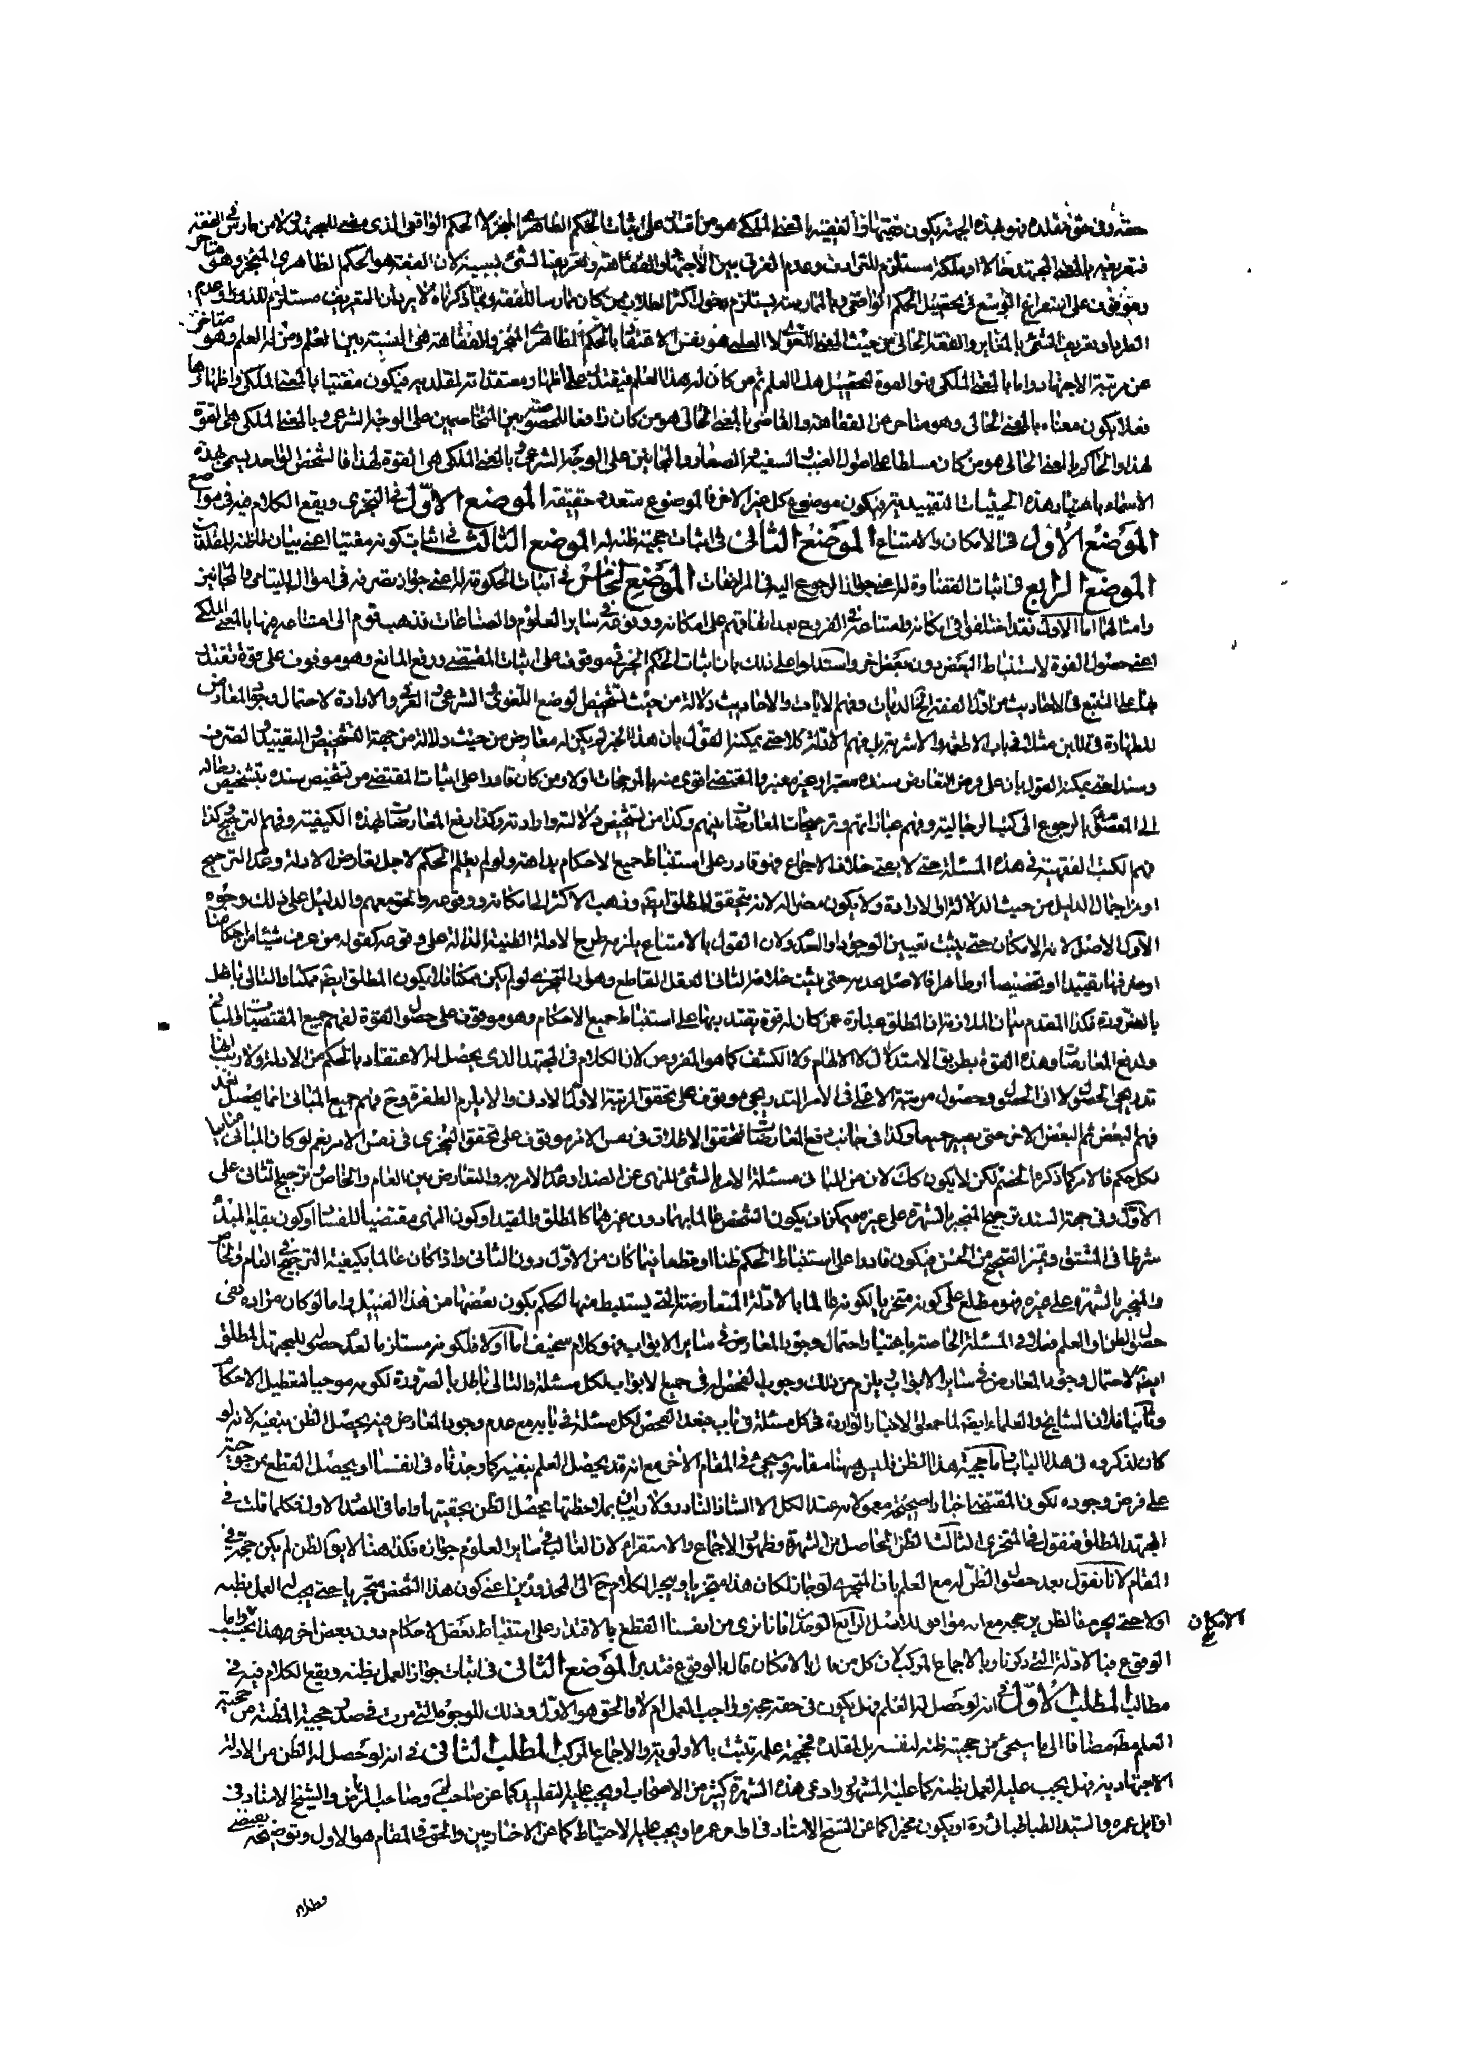 حقه وفى حق مقلده فهو بهذه الجهة يكون فقيها والفقيه بالمعنى الملكى هو من اقتدر على اثبات الحكم الظاهرى المنجز لا الحكم الواقعى الذى للمجتهد لا من مارس فى الفقه
فتعريفه بالعلم المجتهد حالا او ملكة مستلزم للترادف وعدم الفرق بين الاجتهاد والفقاهة وتعريف الشئ بسببه لان الفقه هو الحكم الظاهرى المنجز وهو متاخر
وموقوف على استفراغ الوسع فى تحصيل الحكم الواقعى وبالممارسة يستلزم دخول اكثر الطلاب ممن كان ممارسا للفقه وبما ذكرناه التعريف مستلزم وعدم
الطرد او تعريف الشئ بالمغاير والفقه الحالى من حيث المعنى اللغوى لا العلمى هو نفس الاعتقاد بالحكم الظاهرى المنجز والفقاهة هى النسبة بين العلم ومن له العلم وهو متاخر
عن مرتبة الاجتهاد واما بالمعنى الملكى فهو القوة لتحصيل هذا العلم ثم من كان له هذا العلم فيقتدر على اظهار معتقداته لمقلديه فيكون مفتيا بالمعنى الملكى واظهارها
فعلا يكون معناه بالمعنى الحالى وهو متاخر عن الفقاهة والقاضى بالمعنى الحالى هو من كان رافعا للخصومة بين المتخاصمين على الوجه الشرعى وبالمعنى الملكى هى القوة
لهذا والحاكم بالمعنى الحالى هو من كان مسلطا على اموال الغيب والسفيه والصغار والمجانين على الوجه الشرعى وبالمعنى الملكى هى القوة لهذا فالشخص الواحد يسمى بهذه
الاسماء باعتبار هذه الحيثيات التقييدية ويكون موضوع كل غير الاخر فالموضوع متعدد حقيقة الموضع الاول فى التجزى ويقع الكلام فيه فى مواضع
الموضع الاول فى الامكان والامتناع الموضع الثانى فى اثبات حجية ظنه له الموضع الثالث فى اثبات كونه مفتيا اعنى بيان ظنه للمقلد
الموضع الرابع فى اثبات القضاوة له اعنى جواز الرجوع اليه فى المرافعات الموضع الخامس فى اثبات الحكومة له اعنى جواز تصرفه فى اموال اليتامى والمجانين
وامثالهما اما الاول فقد اختلفوا فى امكانه وامتناعه فى الفروع بعد اتفاقهم على امكانه ووقوعه فى ساير العلوم والصناعات فذهب قوم الى امتناعه فيها بالمعنى الملكى
اعنى حصول القوة لاستنباط البعض دون بعض اخر واستدلوا على ذلك بان اثبات الحكم الجزئى موقوف على اثبات المقتضى ورفع المانع وهو موقوف على قوة تقتدر
بها على التتبع فى الاحاديث من اول الفقه الى الديات وفهم الايات والاحاديث دلالة من حيث تشخيص الوضع اللغوى والشرعى والعرفى والارادة لاحتمال وجود المعارض
للطهارة فى اللبن مثلا فى باب الاطعمة والاشربة بل فهم الادلة كلا حتى يمكنه القول بان هذا الخبر لم يكن له معارض من حيث دلالة من جهة التخصيص والتقييد والصرف
وسندا حتى يمكنه القول بان على فرض التعارض سنده معتبر او غير معتبر والمقتضى اقوى منه بالمرجحات اولا ومن كان قادرا على اثبات المقتضى من تشخيص سنده بتشخيص رجاله
الى المعصوم بالرجوع الى كتب الرجالية وفهم عباراتهم وترجيحات المعارضات بينهم وكذا من تشخيص دلالته وارادته وكذا رفع المعارضات بهذه الكيفية وفهم الترجيح وكذا
فهم الكتب الفقهية فى هذه المسئلة حتى لا يفتى خلاف الاجماع فهو قادر على استنباط جميع الاحكام بداهة ولو لم يعلم الحكم لاجل تعارض الادلة وعدم الترجيح
او من اجمال الدليل من حيث الدلالة او الارادة ولا يكون مضرا له لانه يتحقق للمطلق ايضا وذهب الاكثر الى امكانه ووقوعه والحق معهم والدليل على ذلك وجوه
الاول الاصل لانه الامكان حتى يثبت تعيين الوجود او العدم ولان القول بالامتناع يلزم طرح الادلة الظنية الدالة على وقوعه كقوله من عرف شيئا من احكامنا
او صرفها تقييدا او تخصيصا او ظاهرا فالاصل عدمه حتى يثبت خلافه الثانى العقل القاطع وهو ان التجزى لو لم يكن ممكنا فلا يكون المطلق ايضا ممكنا والتالى باطل
بالضرورة فكذا المقدم بيان الملازمة ان المطلق عبارة عمن كان له قوة يقتدر بها على استنباط جميع الاحكام وهو موقوف على حصول القوة لفهم جميع المقتضيات والمبانى
ولدفع المعارضات وهذه القوة بطريق الاستدلال لا الالهام ولا الكشف كما هو المفروض لان الكلام فى المجتهد الذى يحصل له الاعتقاد بالحكم من الادلة ولا ريب انها
تدريجى الحصول لا انى الحصول وحصول مرتبة الاعلى فى الامر التدريجى موقوف على تحقق المرتبة الاولى الادنى والا يلزم الطفرة وح فهم جميع المبانى انما يحصل بعد
فهم البعض ثم البعض الاخر حتى يصير جميعا وكذا فى جانب دفع المعارضات فتحقق الاطلاق فى نفس الامر موقوف على تحقق التجزى فى نفس الامر نعم لو كان المبانى مبانيا
لكل حكم فالامر كما ذكره الخصم لكن لا يكون كك لان من المبانى مسئلة الامر بالشئ للنهى عن الضد او عدم الامر به والتعارض بين العام والخاص وترجيح الثانى على
الاول وفى جهة السند ترجيح المنجبر بالشهرة على غيره فيمكن ان يكون الشخص عالما بهما دون غيرهما كالمطلق والمقيد او كون النهى مقتضيا للفساد او كون بقاء المبدء
شرطا فى المشتق وتميز الصحيح من الحسن فيكون قادرا على استنباط الحكم ظنا او قطعا فيما كان من الاول دون الثانى واذا كان عالما بكيفية الترجيح فى العام والخاص
والمنجبر بالشهرة على غيره فهو مطلع على كونه متجزيا لكونه عالما بالادلة المتعارضة التى يستنبط منها الحكم بكون بعضها من هذا القبيل واما لو كان مراده نفى
حصول الظن او العلم فعلا فى المسئلة الخاصة باعتبار احتمال وجود المعارض فى ساير الابواب فهو كلام سخيف اما اولا فلكونه مستلزما لعدم حصوله للمجتهد المطلق
ايضا لاحتمال وجود المعارض فى ساير الابواب ويلزم من ذلك وجوب الفحص له فى جميع الابواب لكل مسئلة والتالى باطل بالضرورة لكونه موجبا لتعطيل الاحكام
وثانيا فلان المشايخ والعلماء ايضا لما جمعوا الاخبار الواردة فى كل مسئلة فى باب فبعد الفحص لكل مسئلة فى بابه مع عدم وجود المعارض فيه يحصل الظن بنفيه لانه لو
كان لذكروه فى هذا الباب واما حجية هذا الظن فليس هيهنا مقامه وسيجئ فى المقام الاخر مع انه قد يحصل العلم بنفيه كما وجدناه فى انفسنا او يحصل القطع بمرجوحيته
على فرض وجوده لكون المقتضى اخبارا صحيحة معمولا به عند الكل الا الشاذ النادر ولا ريب ان بملاحظتها يحصل الظن بحقيتها واما فى الصدر الاول فكلما قلت فى
المجتهد المطلق فنقول فى المتجزى الثالث الظن الحاصل من الشهرة وظهور الاجماع والاستقراء لان الغالب فى ساير العلوم جوازه فكذا هنا لا يق الظن لم يكن حجة فى
المقام لانا نقول بعد حصول الظن له مع العلم بان المتجزى لو جاز لكان هذا متجزيا وينجر الكلام ح الى المحذورين اعنى كون هذا الشخص متجزيا حتى يجب له العمل بظنه
او لا حتى يحرم فالظن حجة مع انه موافق للاصل الرابع الوجدان فانا نرى من انفسنا القطع بالاقتدار على استنباط بعض الاحكام دون بعض اخر هذا بحسب الامكان واما
الوقوع فبالادلة التى ذكرنا وبالاجماع المركب لان كل من قال بالامكان قال بالوقوع فتدبر الموضع الثانى فى اثبات جواز العمل بظنه ويقع الكلام فيه فى
مطالب المطلب الاول فى انه لو حصل له العلم فهل يكون فى حقه حجة وواجب العمل ام لا والحق هو الاول وذلك للوجوه التى مرت فى صدر حجية المظنة من حجية
العلم مط مضافا الى ما سيجئ من حجية ظنه لنفسه بل لمقلده فحجية علمه تثبت بالاولوية والاجماع المركب المطلب الثانى فى انه لو حصل له الظن من الادلة
الاجتهادية فهل يجب عليه العمل بظنه كما عليه المشهور وادعى هذه الشهرة كثير من الاصحاب او يجب عليه التقليد كما عن صاحب لم وصاحب الرياض والشيخ الاستاد فى
اوايل عمره والسيد الطباطبائى ره او يكون مخيرا كما عن الشيخ الاستاد فى اواخر عمره او يجب عليه الاحتياط كما عن الاخباريين والحق فى المقام هو الاول وتوضيحه يقتضى